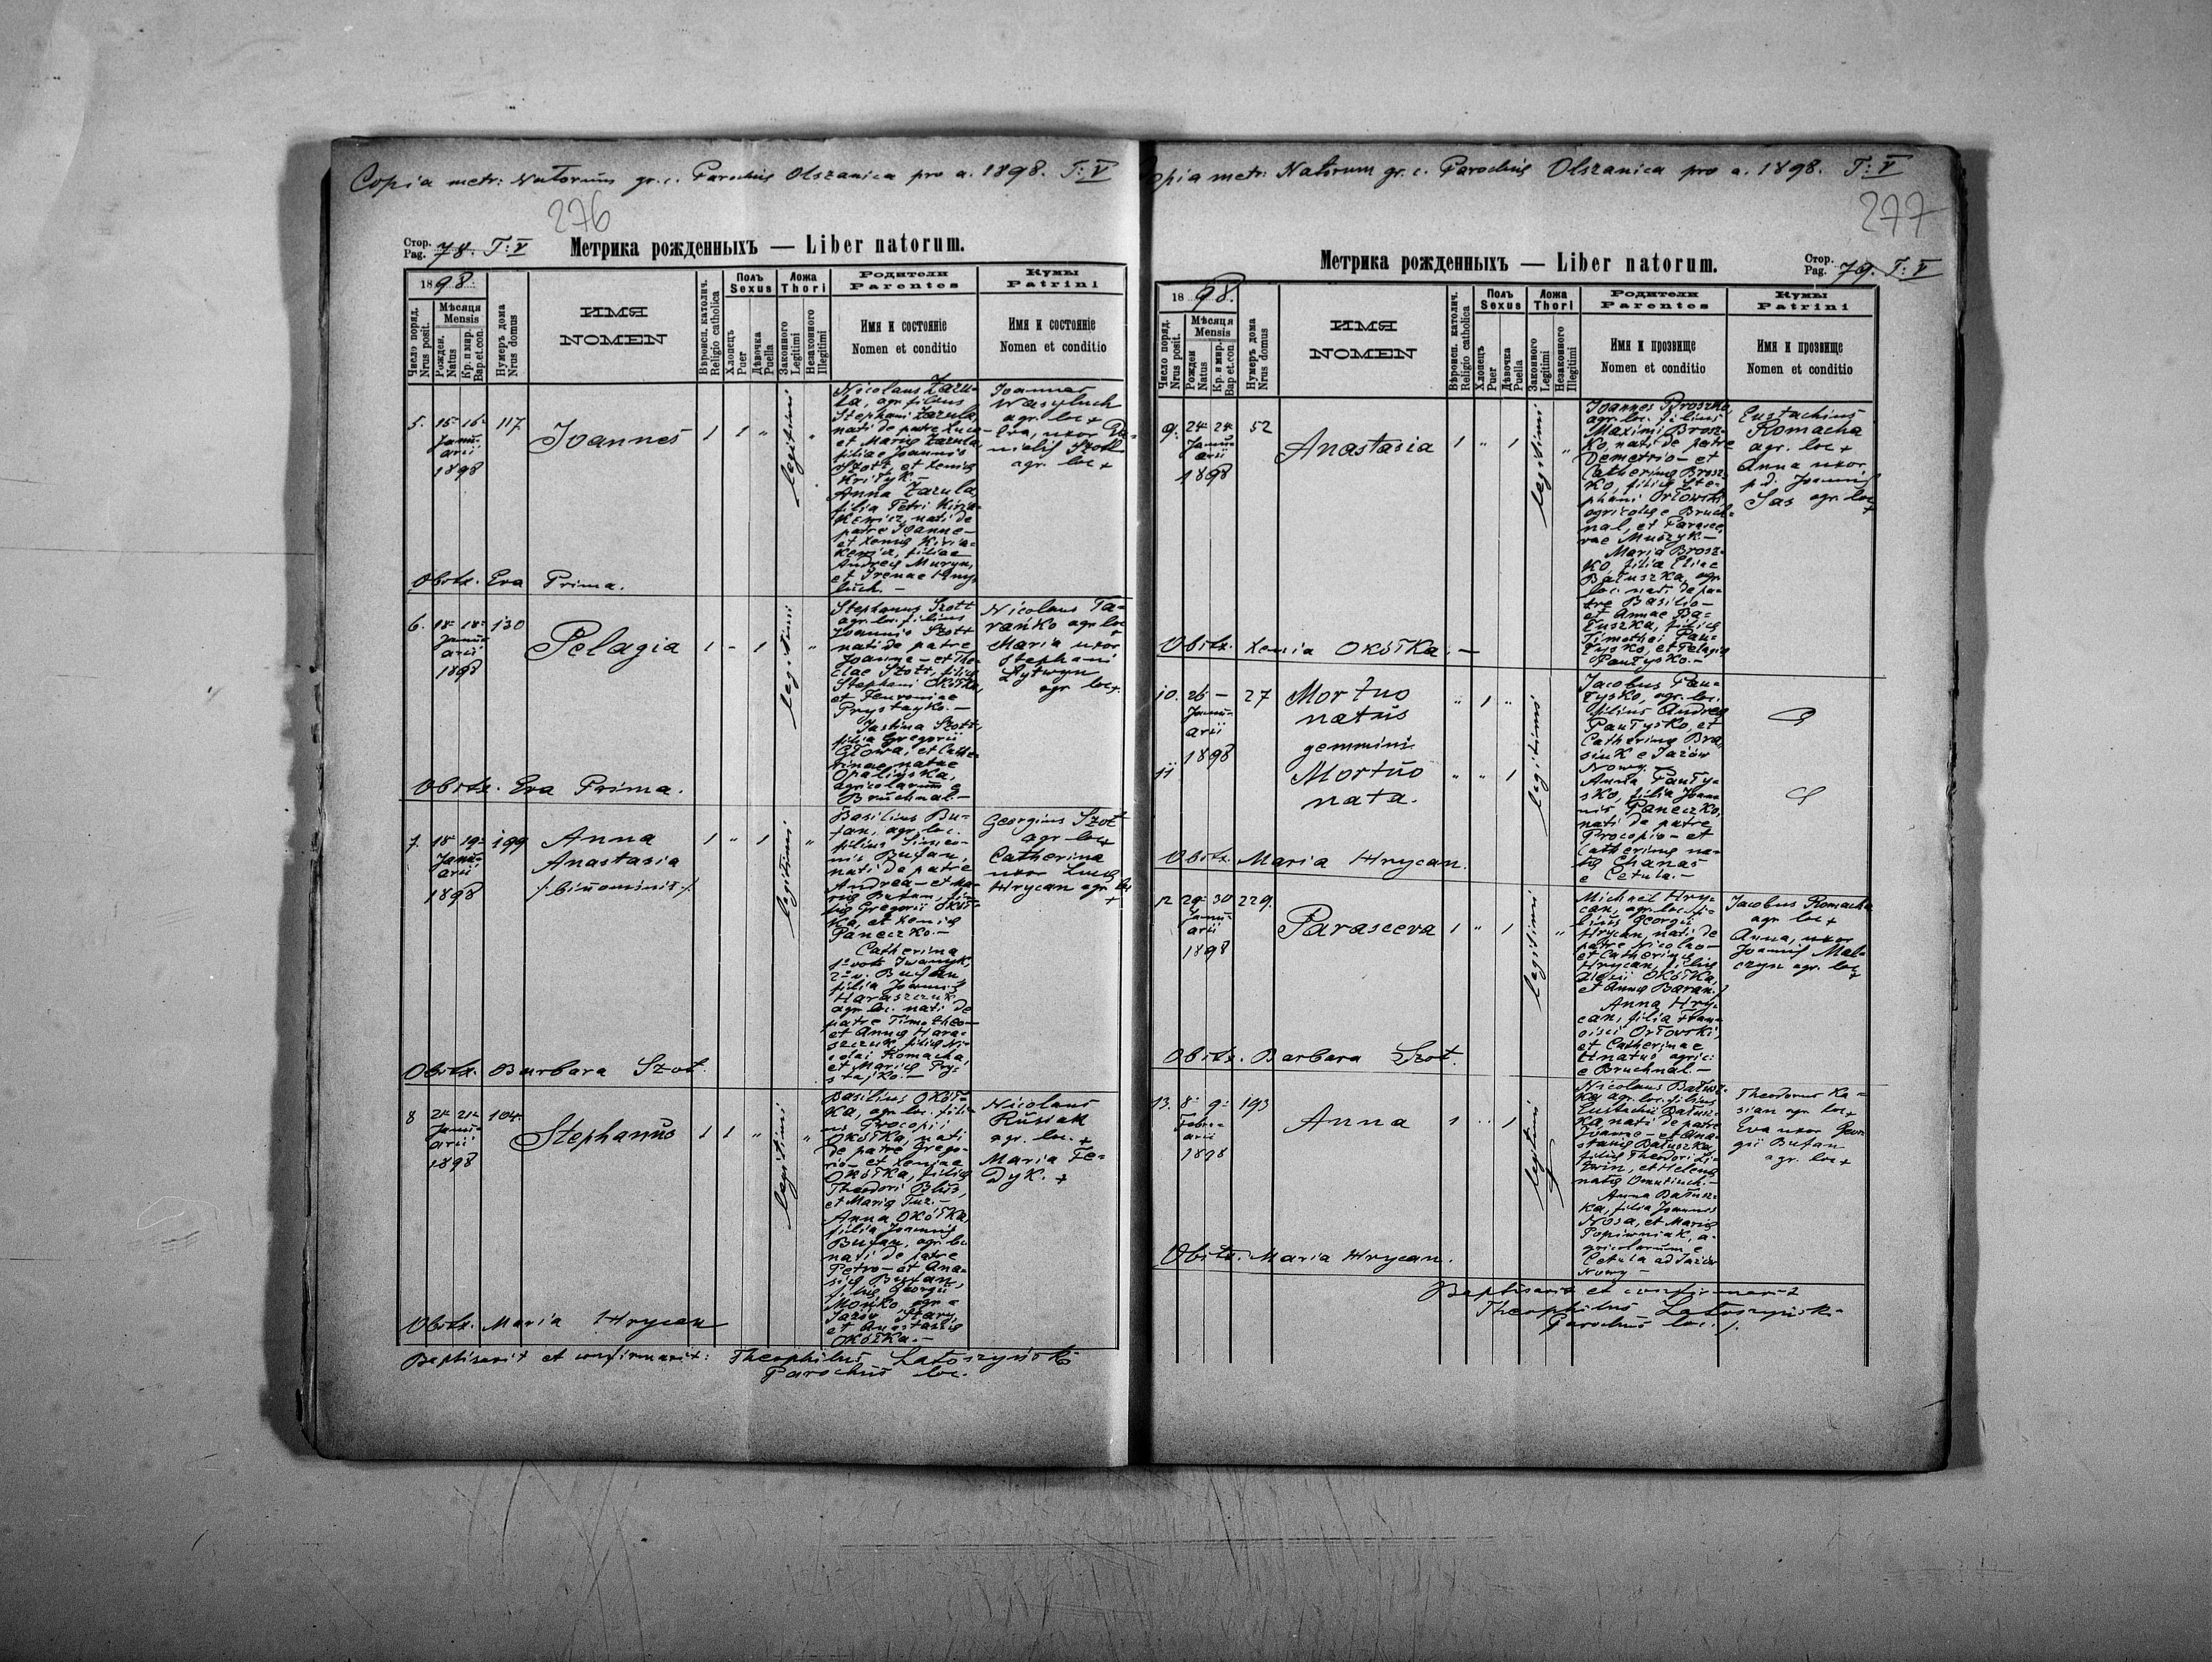 Copia metr: Natorum gr. c. Parochiş Olszanica pro a. 1898. T: V
276
Стор.
Pag. 78. T: V
Метрика рожденныхъ — Liber natorum.
1898.
Число поряд.
Nrus posit.
Мѣсяця
Mensis
Рожден.
Natus
Кр. и мир.
Bap. et. con.
Нумеръ дома
Nrus domus
ИМЯ
NOMEN
Вѣроисп. католич.
Religio catholica
Полъ
Sexus
Хлопецъ
Puer
Дѣвочка
Puella
Ложа
Thori
Законного
Legitimi
Незаконного
Illegitimi
Родители
Parentes
Имя и состояніе
Nomen et conditio
Кумы
Patrini
Имя и состояніе
Nomen et conditio
5. 15- 16- 117
Janu-
arii
1898
Joannes
1 1 " legitimi "
Nicolaus Zazu-
la, agr. filius
Stephani Zazula
nati de patre Luca-
et Marię Zazula,
filiae Joannis
Szott, et Xenię
Krityk.-
Anna Zazula,
filia Petri Kiria-
Kewicz, nati de
patre Joanne-
et Xenię Kiria-
Kewicz, filiae
Andreę Muryn,
et Irenae
Joannes
Wasyluch
agr. loc +
Eva, uxor Da-
nielis Szott
agr. loc +
Obstx. Eva Prima.
6. 18- 18- 130
Janu-
arii
1898
Pelagia
1 - 1 legitimi "
Stephanus Szott
agr. loc. filius
Joannis Szott
nati de patre
Joanne - et The-
clae Szott, filię
Stephani Okółka,
et Fenroniae
Prystayko.-
Justina Szott,
filia Gregorii
Głowa, et Cathe-
rinae natae
Opalińska,
agricolarum e
Bruchnal.-
Nicolaus Ta-
rańko agr loc
+
Maria uxor
Stephani
Lytwyn
agr loc+
Obstx. Eva Prima.
7. 18- 19- 199
Janu-
arii
1898
Anna
Anastasia
/: binominis :/
1 " 1 legitimi "
Basilius Bu-
fan, agr. loc.
filius Simeo-
nis Bufan,
nati de patre
Andrea- et Ma-
rię Bufan, fi-
lię Gregorii Okół-
ka, et Xenię
Paneczko.-
Catherina
1o voto Iwanyk,
2o v. Bufan
filia Joannis
Haraszczuk
agr loc. nati de
patre Timotheo-
et Annę Hara-
szczuk, filię Ni-
colai Romacha,
et Marię Pry-
stajko.-
Georgius Szot
agr loc+
Catherina
uxor Lucę
Hrycan agr. loc
+
Obstx. Barbara Szot.
8 21- 21- 104.
Janu-
arii
1898
Stephanus
1 1 " legitimi "
Basilius Okół-
ka, agr. loc. fili-
us Procopii
Okółka, nati
de patre Grego-
rio- et Xeniae
Okółka, filię
Theodori Blus,
et Marię Tuz.-
Anna Okółka,
filia Joannis
Bufan, agr. loc
nati de patre
Petro- et Ana-
się Bufan,
filię Georgii
Mońko agr-
Jazów Stary,
et Anastasię
Okółka.-
Nicolaus
Rusiak
agr. loc. +
Maria Fe-
dyk. +
Obstx. Maria Hrycan
Baptisavit et confirmavit: Theophilus Latoszyński
Parochus loc.
Copia metr: Natorum gr. c. Parochiş Olszanica pro a. 1898. T: V
277
Метрика рожденныхъ — Liber natorum.
Стор.
Pag. 79. T: V
1898.
Число поряд.
Nrus posit.
Мѣсяця
Mensis
Рожден
Natus
Кр. и мир.
Bap et. con
Нумеръ дома
Nrus domus
ИМЯ
NOMEN
Вѣроисп. католич.
Religio catholica
Полъ
Sexus
Хлопецъ
Puer
Дѣвочка
Puella
Ложа
Thori
Законного
Legitimi
Незаконного
Illegitimi
Родители
Parentes
Имя и прозвище
Nomen et conditio
Кумы
Patrini
Имя и прозвище
Nomen et conditio
9. 24- 24 52
Janu-
arii
1898
Anastasia
1 " 1 legitimi "
Joannes Broszko,
agr. loc. filius
Maximi Brosz-
ko, nati de patre
Demetrio- et
Catherinę Brosz-
ko, filię Ste-
phani Orłowski
agricolę e Bruch-
nal, et Parasce-
vae Muszyk.-
Maria Brosz-
ko, filia Eliae
Batuszka, agr.
loc. nati de pa-
tre Basilio-
et Annae Ba-
tuszka, filię
Timothei Pan-
tysko, et Pelagię
Pantysko.-
Eustachius
Romacha
agr. loc +
Anna uxor
p.d. Joannis
Sas agr. loc
+
Obstx. Xenia Okółka.-
10. 26 - 27
Janu-
arii
1898
Mortuo
natus
gemmini
" 1 " legitimi
11
Mortuo
nata.
" " 1
Jacobus Pan-
tysko, agr. loc.
filius Andreę
Pantysko, et
Catherinę Bra-
siuk e Jazów
Nowy.-
Anna Panty-
sko, filia Joan-
nis Paneczko,
nati de patre
Procopio- et
Catherinę na-
tę Chanas
e Cetula.-
Obstx. Maria Hrycan.
12 29- 30 229.
Janu-
arii
1898
Parasceva
1 " 1 legitimi "
Michaël Hry-
can, agr. loc. fi-
lius Georgii
Hrycan, nati de
patre Nicolao-
et Catherinę
Hrycan, filię
Okółka,
et Annę Baran.
Anna Hry-
can, filia Fran-
cisci Orłowski,
et Catherinae
agric:
e Bruchnal.-
Jacobus Romacha
agr loc +
Anna, uxor
Joannis Mal-
czyn agr. loc
+
Obstx. Barbara Szot.
13. 8- 9- 193
Febru-
arii
1898
Anna
1 " 1 legitimi
Nicolaus Batusz-
ka agr. loc. filius
Eustachii Batusz-
ka nati de patre
Joanne- et Ana-
stasię Batuszka,
filię Theodori Li-
twin, et Helenę
natę
Anna Batusz-
ka, filia Joannis
Nosa, et Marię
Popiwniak, a-
gricolarum e
Cetula ad Jazów
Nowy-
Theodorus Ka-
sian agr. loc+
Eva uxor Geor-
gii Bufan
agr. loc+
Obstx. Maria Hrycan.
Baptisavit et confirmavit
Theophilus Latoszyński
Parochus loc.